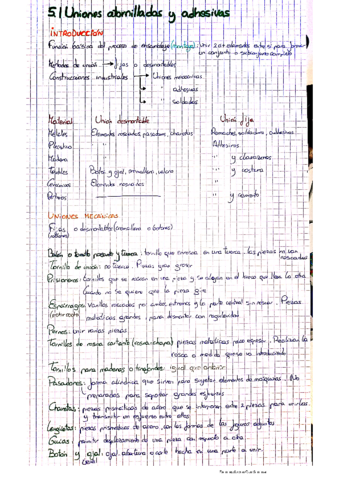 5.1 Uniones atornilladas y adhesivas
INTRODUCCIÓN
Función básica del proceso de ensamblaje (montaje): Unir 2 o + elementos entre sí para formar
un conjunto o subconjunto complejo
Métodos de unión → fijas o desmontables
Construcciones industriales → Uniones mecánicas
→ adhesivas
→ soldadas
Material Unión desmontable Unión fija
Metales Elementos roscados, pasadores, chavetas Remaches, soldadura, adhesivos
Plástico " Adhesivos
Madera " " y clavazones
Textiles Botón y ojal, cremallera, velcro " y costura
Cerámicos Elementos roscados "
Pétreos " y cemento
UNIONES MECÁNICAS
Fijas o desmontables (cremallera o botones)
Bulón o tornillo pasante y tuerca: tornillo que enrosca en una tuerca, las piezas no van
roscadas
Tornillo de unión: no tuerca. Piezas
Prisioneros: tornillo que se rosca en una pieza y se aloja en el hueco que lleva la otra
Cuando no se quiere que la pieza gire
Espárragos: Varillas roscadas por ambos extremos y la parte central sin roscar. Piezas
metálicas grandes, para desmontar con regularidad
Pernos: unir varias piezas
Tornillos de rosca cortante (rosca chapa): piezas metálicas poco espesor. Realizan la
rosca a medida que se va introduciendo
Tornillos para maderas o tirafondos: igual que anterior
Pasadores: forma cilíndrica que sirven para sujetar elementos de máquinas. No
preparados para soportar grandes esfuerzos
Chavetas: piezas prismáticas de acero que se interponen entre 2 piezas para unirlas
y transmitir un esfuerzo entre ellas
Lengüetas: piezas prismáticas de acero, con las formas de las figuras adjuntas
Guías: permitir desplazamiento de una pieza con respecto a otra
Botón y ojal: ojal abertura o corte hecho en una parte a unir